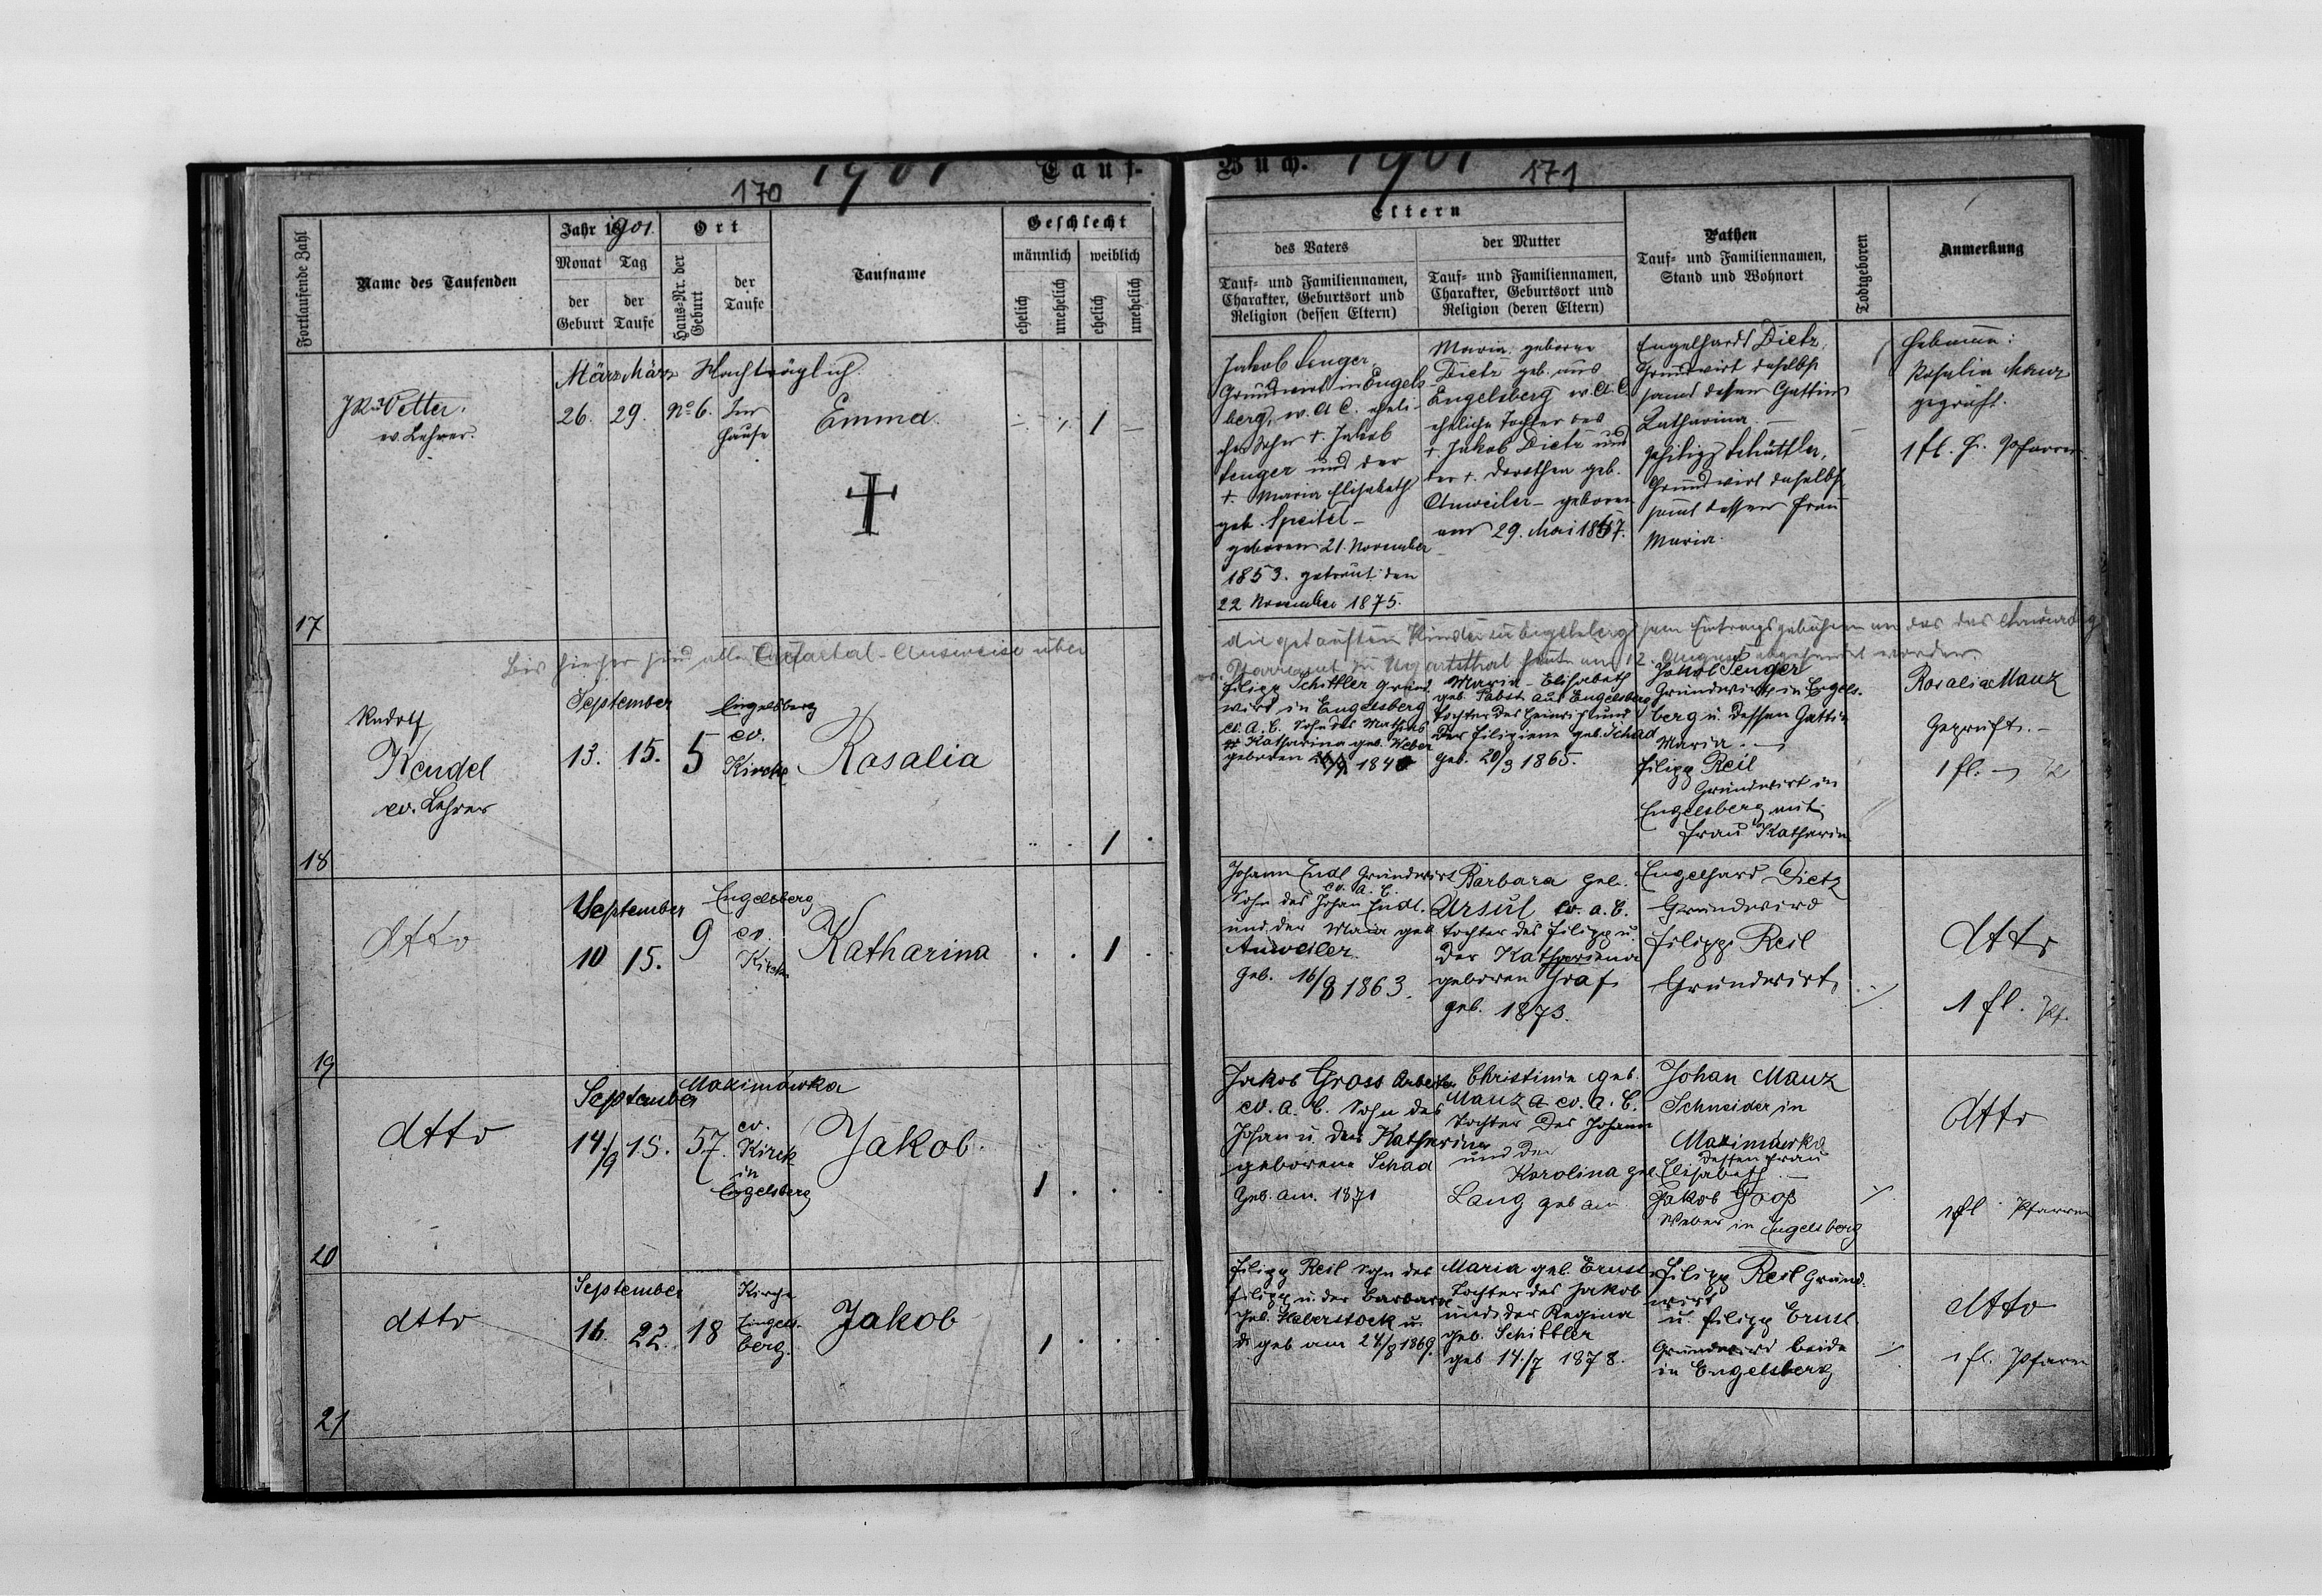 1901 Tauf-
170
Fortlaufende Zahl
Name des Taufenden
Jahr 1901.
Monat
Tag
der Geburt
der Taufe
Ort
Haus-Nr. der Geburt
der Taufe
Taufname
Geschlecht
männlich
weiblich
ehelich
unehelich
ehelich
unehelich
17
Vetter.
ev. Lehrer.
März März Nachträglich.
26. 29. No 6. Im
Hause
Emma.
1
Bis hieher sind alle Quartal-Ausweise über
18
Rudolf
Kendel
ev. Lehrer
September
13. 15. 5
Engelsberg
ev.
Kirche
Rosalia
1
19
dtto
September
10 15. 9
Engelsberg
ev.
Kirche
Katharina
1
20
dtto
September
14./9 15. 57.
Maximówka
ev.
Kirch
in
Engelsberg
Jakob.
1
21
dtto
September
16. 22. 18
Kirche
Engels-
berg.
Jakob
1
Buch. 1901
171
Eltern
des Vaters
Tauf- und Familiennamen,
Charakter, Geburtsort und
Religion (dessen Eltern)
der Mutter
Tauf- und Familiennamen,
Charakter, Geburtsort und
Religion (deren Eltern)
Pathen
Tauf- und Familiennamen,
Stand und Wohnort
Todtgeboren
Anmerkung
Jakob Senger,
Grundwirt in Engels-
berg, ev. A C. eheli-
cher Sohn +. Jakob
Senger und der
+. Maria Elisabeth
geb. Speitel -
geboren 21. November
1853. getraut den
22 November 1875.
Maria geborne
Dietz geb. aus
Engelsberg ev. A. C.
eheliche Tochter des
+. Jakob Dietz und
der +. Dorothea geb.
Anweiler - geboren
am 29. Mai 1857.
Engelhardt Dietz,
Grundwirt daselbst
samt dessen Gattin
Katharina. -
Schüttler,
Grundwirt daselbst
samt dessen Frau
Maria.
Hebamme:
Rosalia Manz
geprüft.
1 fl. H. Pfarrer.
die getauften Kinder zu Engelsberg sam Eintragsgebühren an das
Pfarramt zu Ugartsthal heute am 12. August abgesendet worden.
Filipp Schittler Grund-
wirt in Engelsberg
ev. A. C. Sohn des Mathias
Katharina geb. Weber
geboren
Maria-Elisabeth
geb. Pabst aus Engelsberg
Tochter des Heinrich und
der Filipiene geb. Schad
geb. 20/3 1865.
Jakob Senger
Grundwirth in Engels-
berg u. dessen Gattin
Maria. -
Filipp Reil
Grundwirt in
Engelsberg mit
Frau Katharin
Rosalia Manz
Geprüft. -
1 fl. -
Johann Endl Grundwirt
ev. A. C.
Sohn des Johan Endl.
und der Maria geb.
Anweiler.
geb. 16/8 1863.
Barbara geb.
Ursul ev. a. C.
Tochter des Filipp u.
der Kathariena
geboren Graf.
geb. 1873.
Engelhard Dietz
Grundwird
Filipp Reil
Grundwirt,
dtto
1 fl. Pf.
Jakob Gross Arbeiter
ev. a. C. Sohn des
Johan u. des Katharina
geborene Schad
Geb. am. 1871
Christinie geb.
Manz ev. a. C.
Tochter des Johann
und der
Karolina geb.
Lang geb am
Johan Manz
Schneider in
Maximówka
dessen Frau
Elisabeth. -
Jakob
Weber in Engelsberg
dtto
1 fl. Pfarrer
Filipp Reil Sohn des
Filipp u. der Barbara
geb. Haberstock u.
d. geb am 24/8 1869.
Maria geb. Ernst
Tochter des Jakob
und der Regina
geb. Schittler
geb 14./7 1878.
Filipp Reil Grund-
wirt
u. Filipp Ernst
Grundwird beide
in Engelsberg
dtto
1 fl. Pfarrer